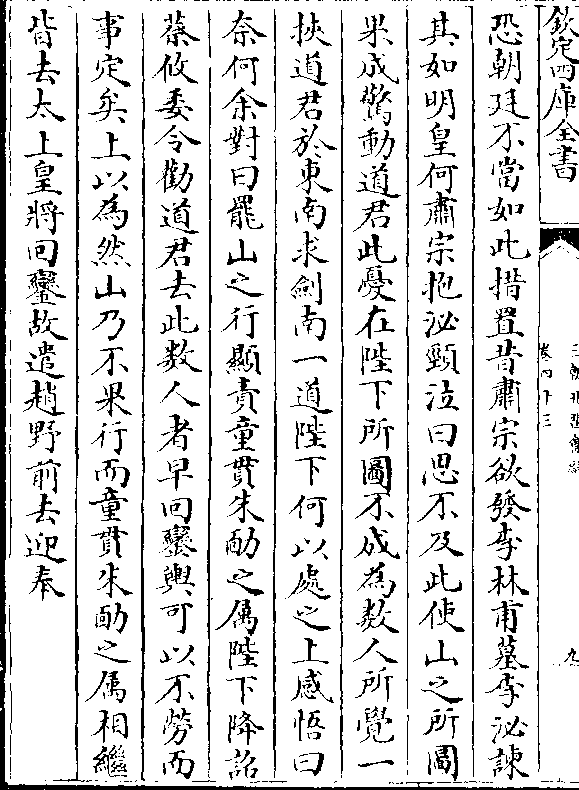 欽定四庫全書
三朝北盟會編
卷四十三
九
恐朝廷不當如此措置昔肅宗欲發李林甫墓李泌諫
其如明皇何肅宗抱泌頸泣曰思不及此使山之所圖
果成驚動道君此憂在陛下所圖不成為數人所覺一
挾道君於東南求劍南一道陛下何以處之上感悟曰
奈何余對曰罷山之行顯責童貫朱勔之屬陛下降詔
蔡攸委令勸道君去此数人者早回鑾輿可以不勞而
事定矣上以為然山乃不果行而童貫朱勔之属相繼
皆去太上皇將回鑾故遣趙野前去迎奉